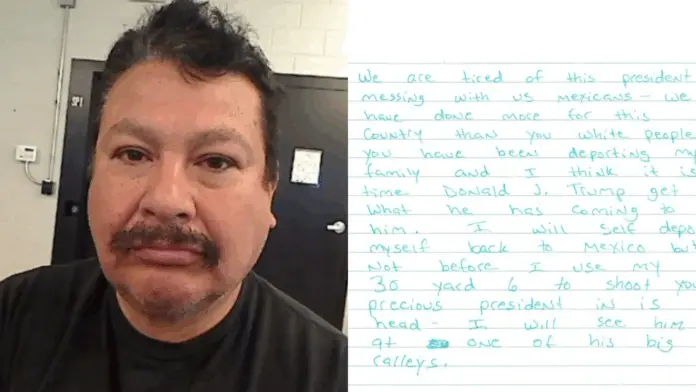 SP1
We are tired of this president
messing with us mexicans - we
have done more for this
country than you white people.
you have been deporting my
family and I think it is
time Donald J. Trump get
what he has coming to
him. I will self depo
myself back to Mexico but
not before I use my
30 yard 6 to shoot you
precious president in is
head - I will see him
at one of his big
ralleys.